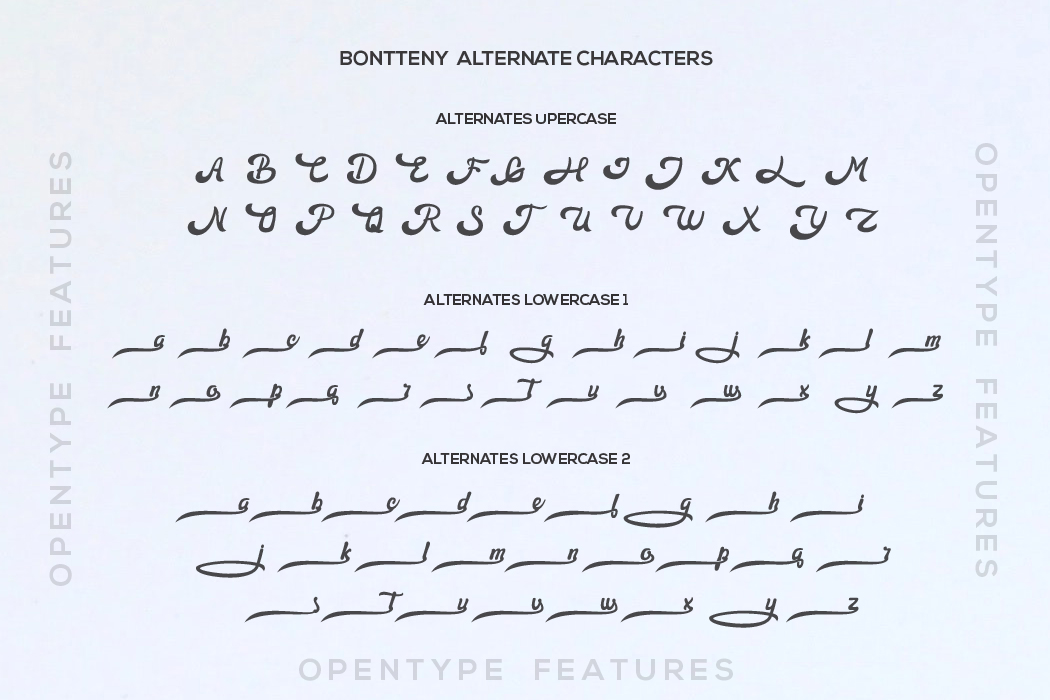 BONTTENY ALTERNATE CHARACTERS
ALTERNATES UPERCASE
A B C D E F G H I J K L M
N O P Q R S T U V W X Y Z
ALTERNATES LOWERCASE 1
a b c d e f g h i j k l m
n o p q r s t u v w x y z
ALTERNATES LOWERCASE 2
a b c d e f g h i
j k l m n o p q r
s t u v w x y z
OPENTYPE FEATURES
OPENTYPE FEATURES
OPENTTYPE FEATURES